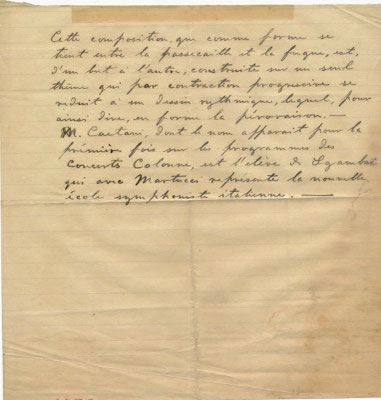 Cette composition, que comme forme se
tient entre la passecaille et la fugue, est,
d'un but à l'autre, construite sur un seul
thème qui par contraction progressive se
réduit à un dessin rythmique, lequel, pour
ainsi dire, en forme la péroraison. —
M. Caetani, dont le nom apparait pour la
première fois sur les programmes des
Concerts Colonne, est l'élève de Sgambati
qui avec Martucci représente la nouvelle
école symphoniste italienne. —